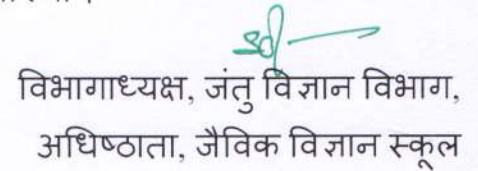 विभागाध्यक्ष, जंतु विज्ञान विभाग,
अधिष्ठाता, जैविक विज्ञान स्कूल